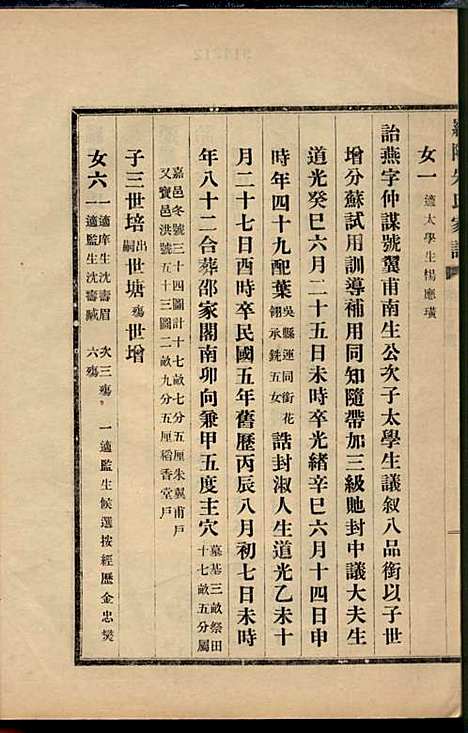 女一 適太學生楊應璜
詒燕字仲謀號翼甫南生公次子太學生議叙八品銜以子世
增分蘇試用訓導補用同知隨帶加三級貤封中議大夫生
道光癸巳六月二十五日未時卒光緒辛巳六月十四日申
時年四十九配葉 吳縣運同銜花翎承銑五女 誥封淑人生道光乙未十
月二十七日酉時卒民國五年舊歷丙辰八月初七日未時
年八十二合葬邵家閣南卯向兼甲五度主穴 墓基三畝祭田十七畝五分屬
嘉邑冬號三十四圖計十七畝七分五厘朱翼甫戶
又寶邑洪號五十三圖二畝九分五厘稻香堂戶
子三世培 出嗣 世塘 殤 世增
女六 一適庠生沈壽眉 次三殤 一適監生候選按經歷金忠爕
一適監生沈壽祺 六殤